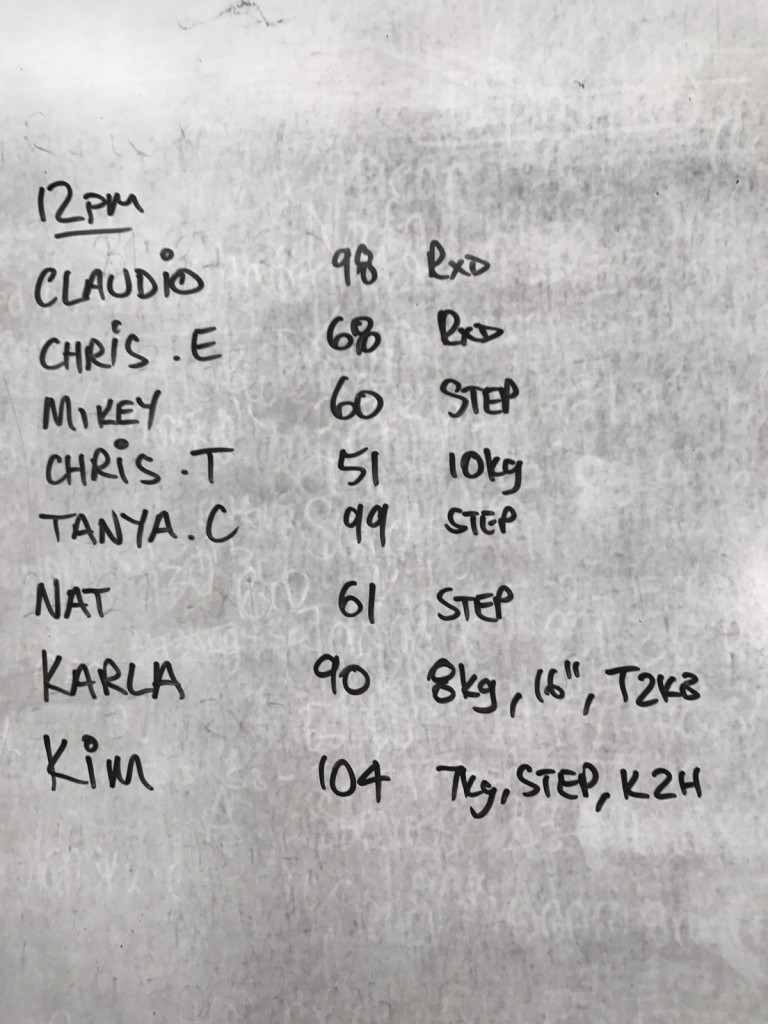 12pm
CLAUDIO 98 RXD
CHRIS .E 68 RXD
MIKEY 60 STEP
CHRIS .T 51 10kg
TANYA. C 99 STEP
NAT 61 STEP
KARLA 90 8kg, 16", T2KB
Kim 104 7kg, STEP, K2H